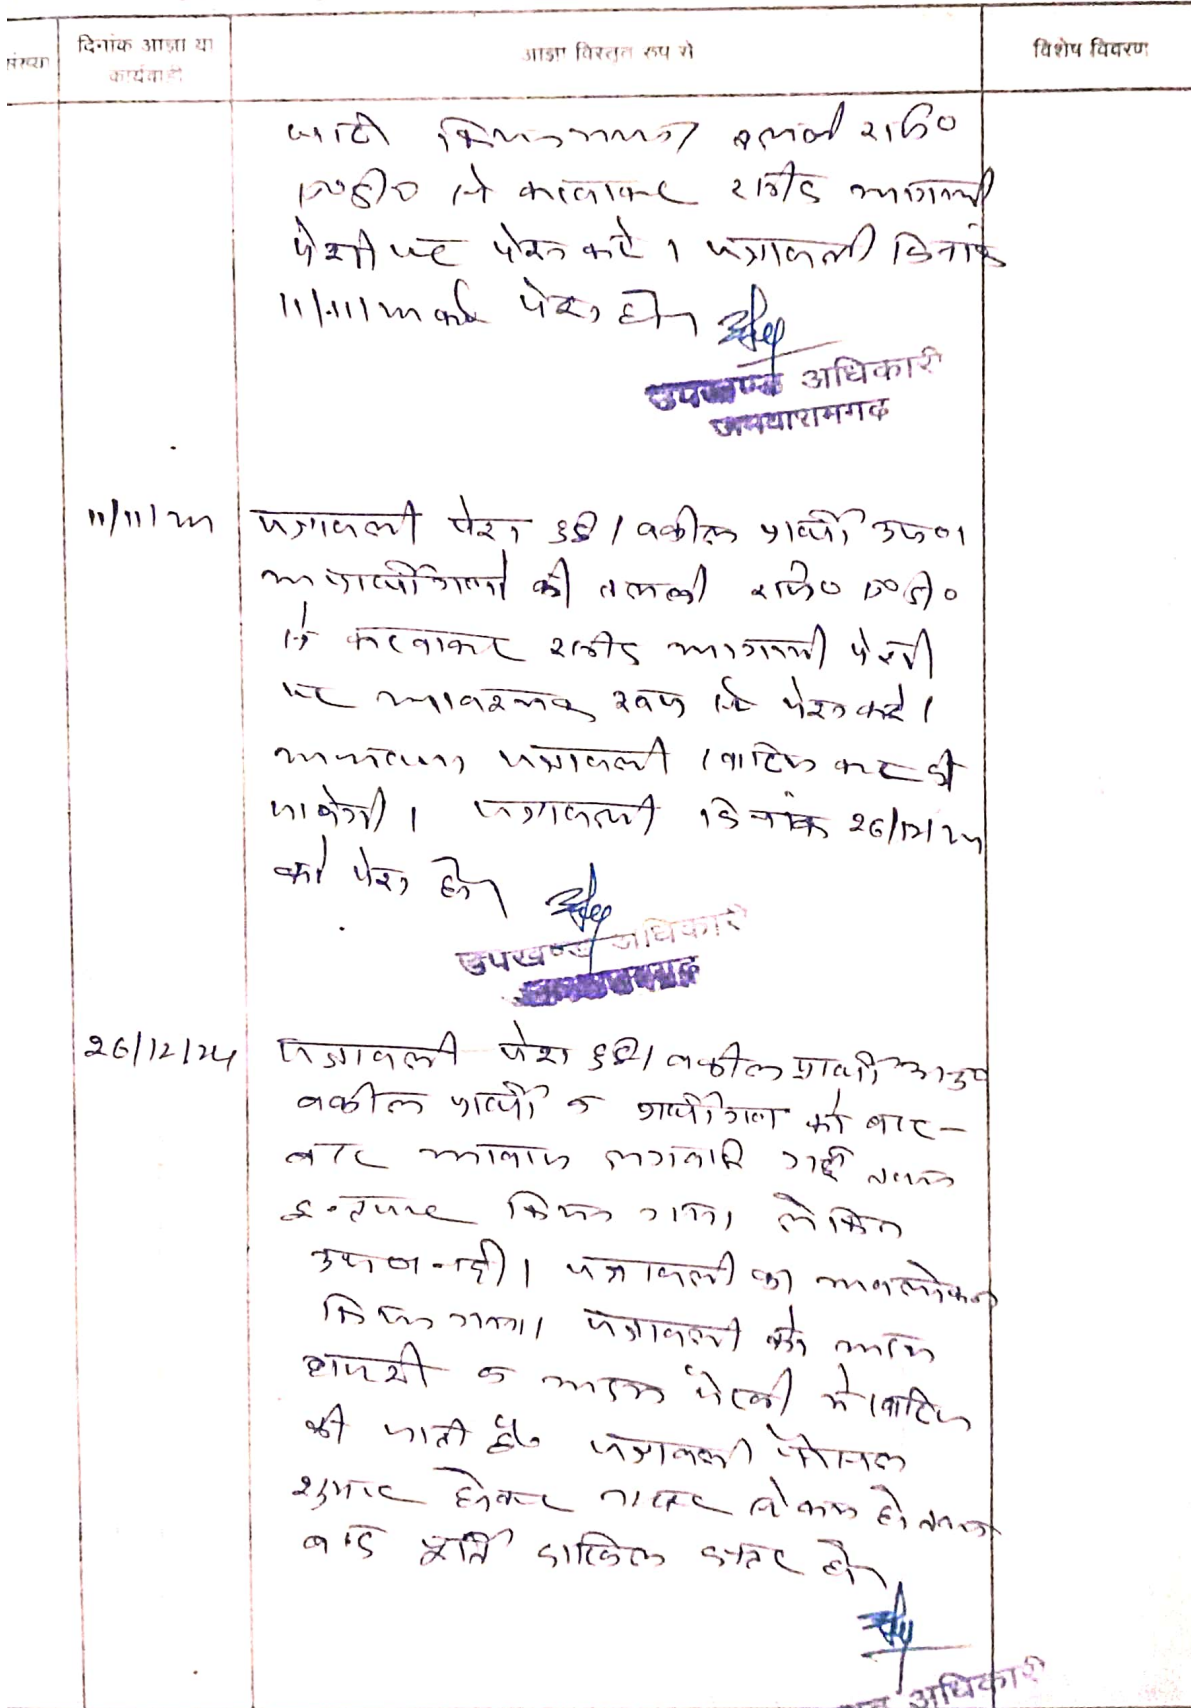 संख्या
दिनांक आज्ञा या
कार्यवाही
आज्ञा विस्तृत रूप से
विशेष विवरण
से करवाकर रसीद आगामी
पेशी पर पेश करे। पत्रावली दिनांक
को पेश हो
उपखण्ड अधिकारी
जमवारामगढ
पत्रावली पेश हुई। वकील प्रार्थी उप०।
अप्रार्थीगणों की तलबी रजि० ए०डी०
से करवाकर रसीद आगामी पेशी
पर आवश्यक रूप से पेश करे।
अन्यथा पत्रावली खारिज कर दी
जावेगी। पत्रावली दिनांक 26/12/24
को पेश हो
उपखण्ड अधिकारी
26/12/24
पत्रावली पेश हुई। वकील प्रार्थी
वकील प्रार्थी व प्रार्थीगण को बार-
बार आवाज लगवाई गई
इन्तजार किया गया। लेकिन
उप० नही। पत्रावली का अवलोकन
किया गया। पत्रावली को अदम
हाजरी व अदम पैरवी मे खारिज
की जाती है। पत्रावली फैसल
शुमार होकर नम्बर से कम हो
बाद पूर्ति दाखिल दफ्तर हो
अधिकारी